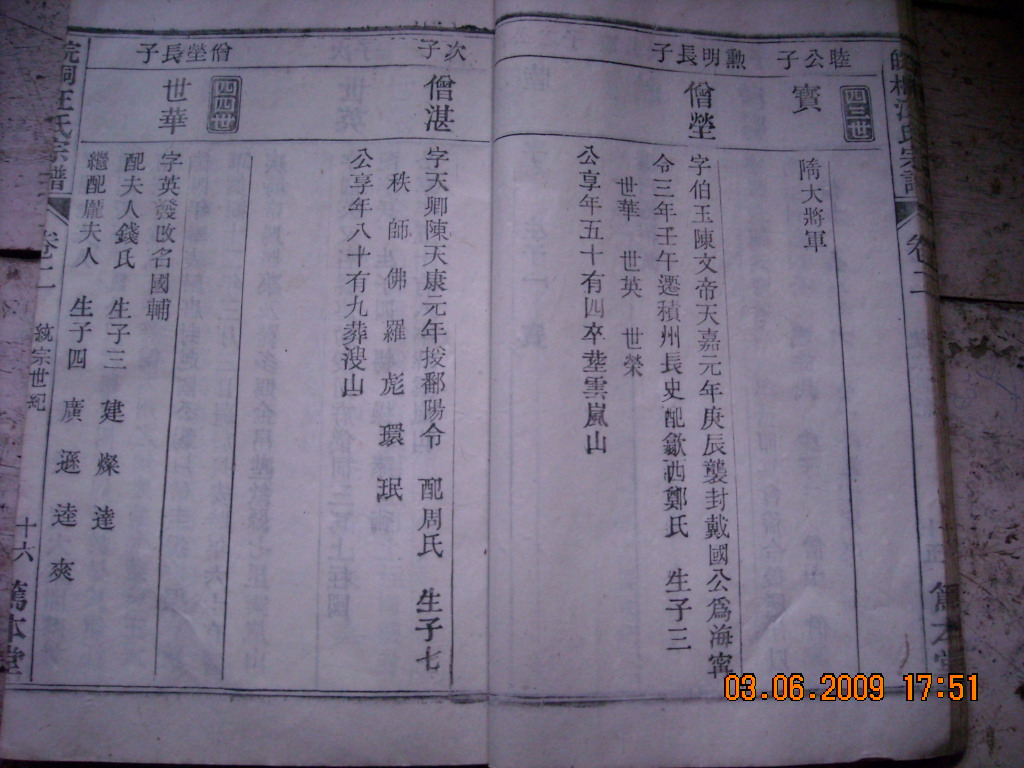 四三世
睦公子
寶
隋大將軍
勲明長子
僧塋
字伯王陳文帝天嘉元年庚辰襲封戴國公爲海寧
令三年壬午遷積州長史配歙西鄭氏 生子三
世華 世英 世榮
公享年五十有四卒塟雲嵐山
次子
僧湛
字天卿陳天康元年拔鄱陽令 配周氏 生子七
秩 師 佛 羅 彪 環 珉
公享年八十有九葬溲山
四四世
僧塋長子
世華
字英發改名國輔
配夫人錢氏 生子三 建 燦 達
繼配龐夫人 生子四 廣 遜 逵 爽
皖桐汪氏宗譜 卷二 統宗世紀 十六 篤本堂
03.06.2009 17:51